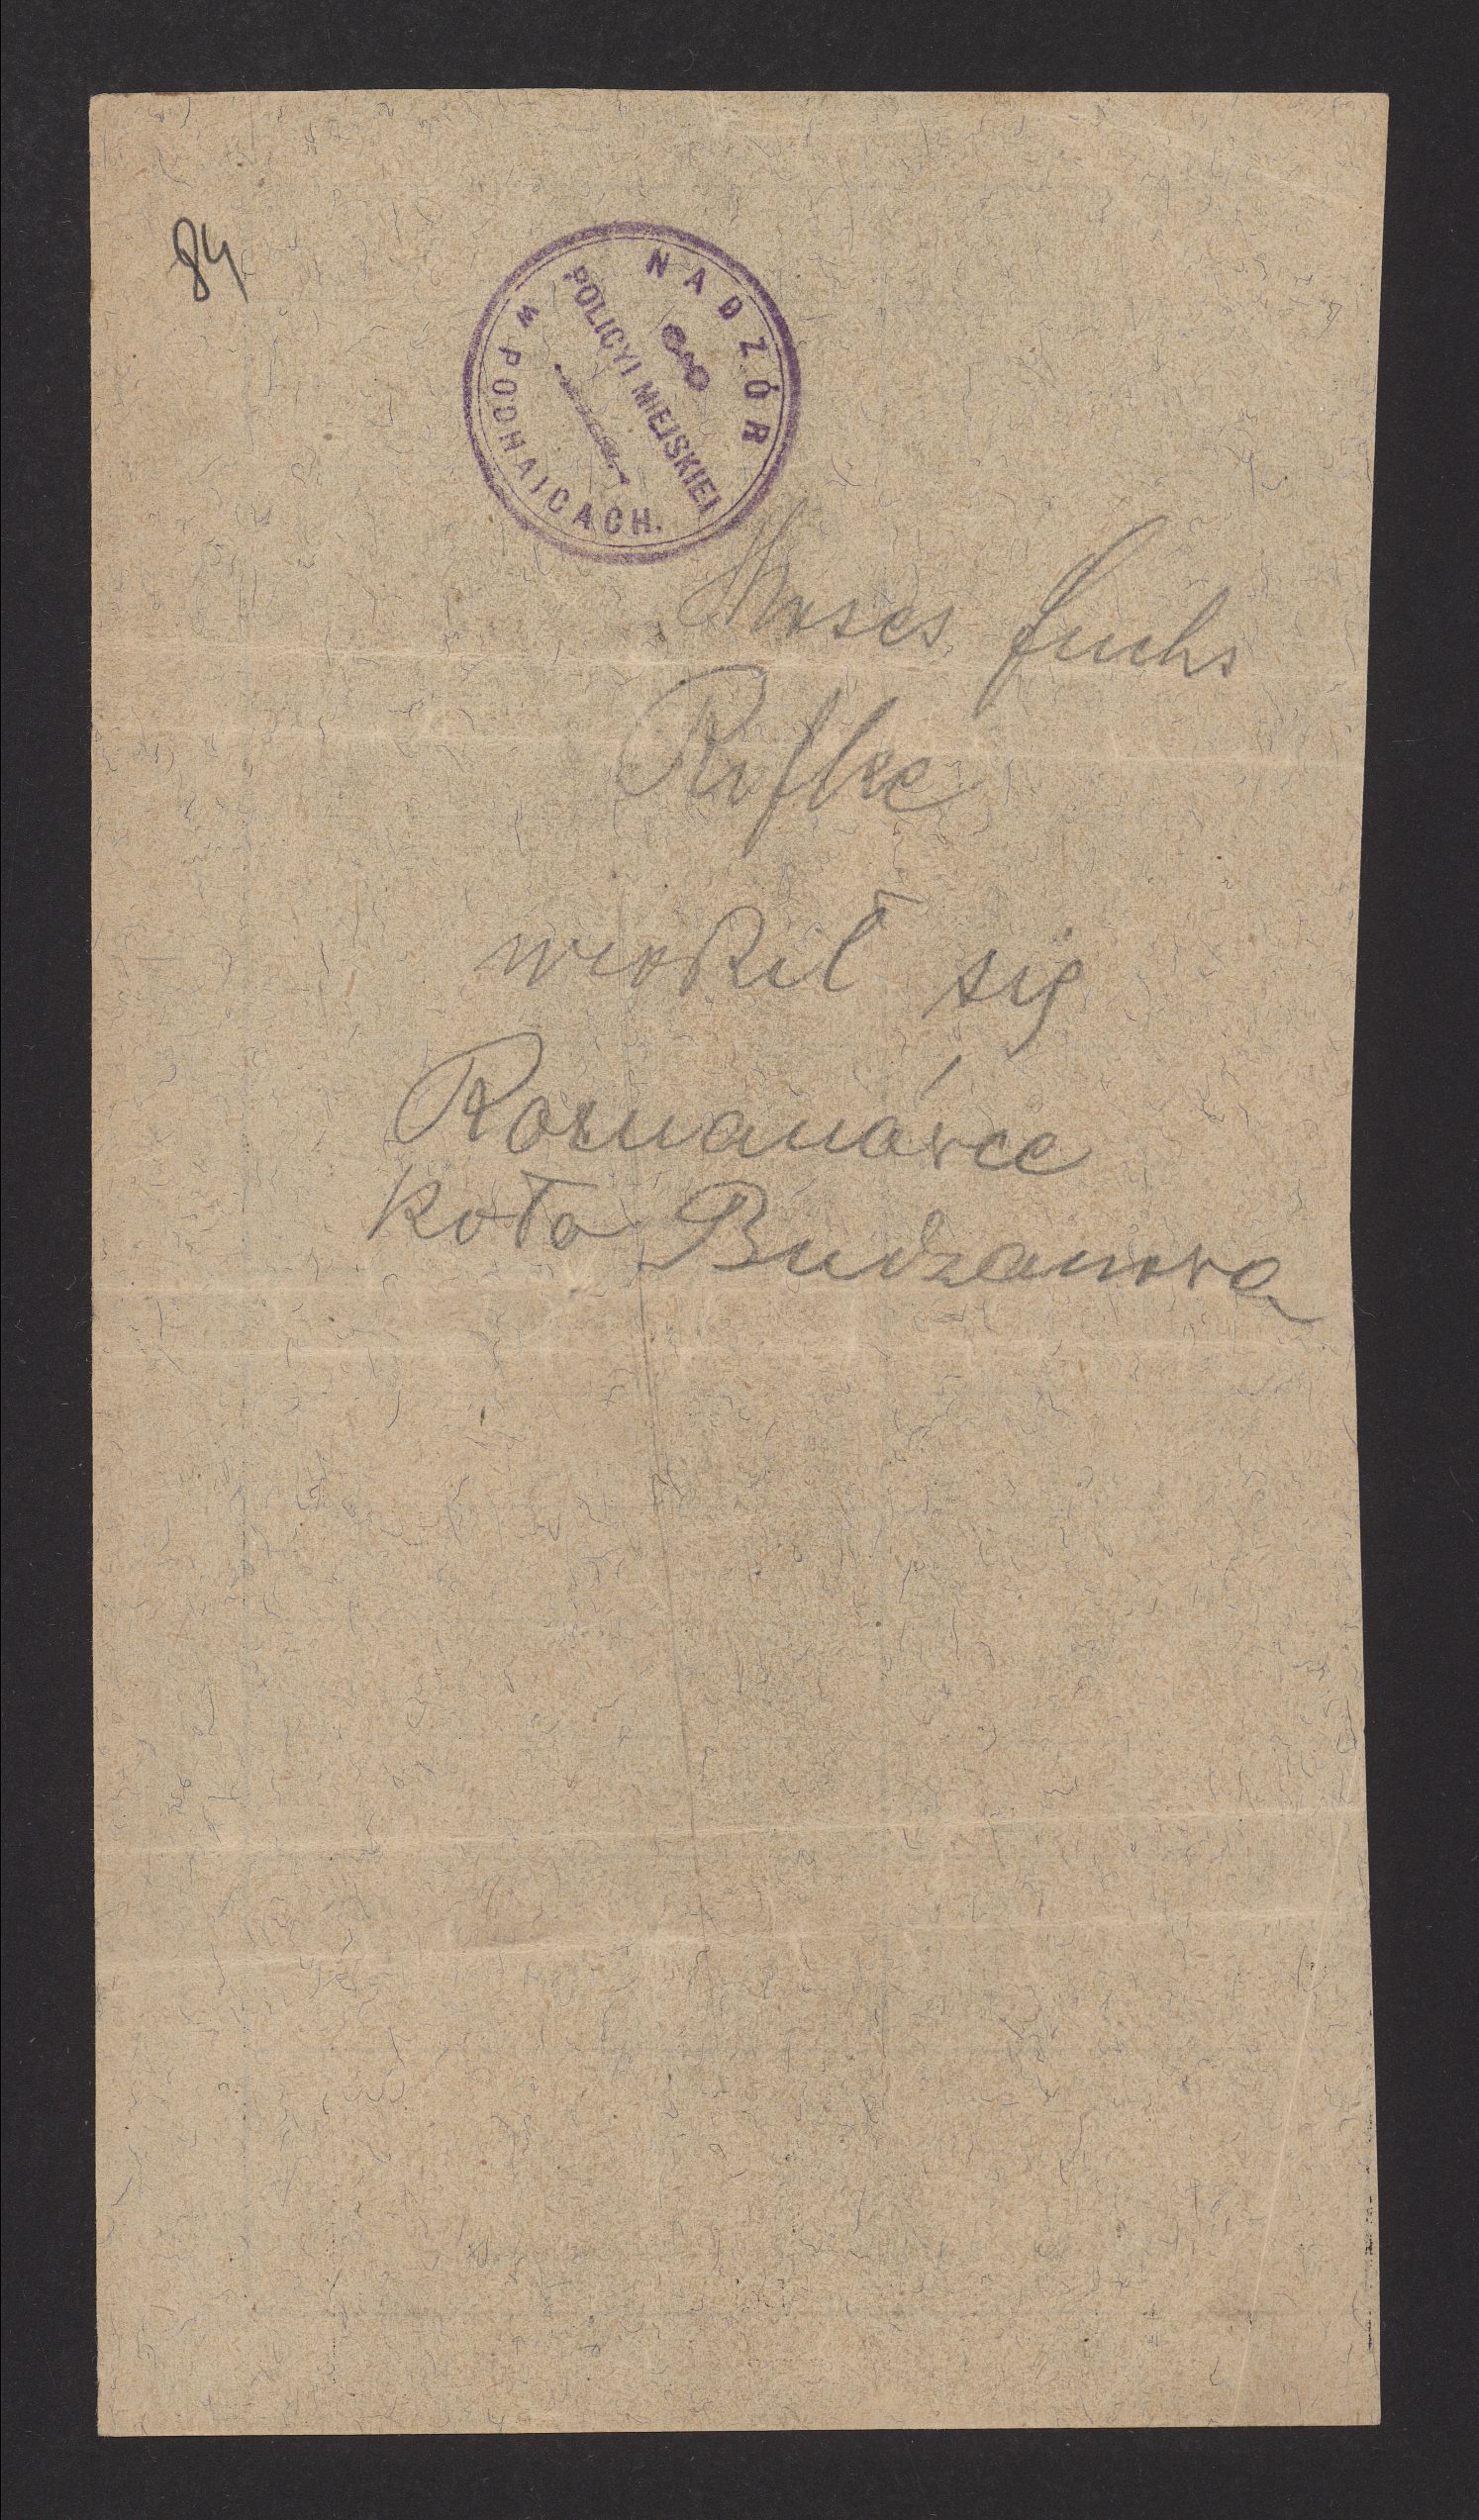 84
NADZÓR
POLICYI MIEJSKIEJ
W PODHAJCACH.
Moses Fuchs
Rifke
urodził się
Romanówce
koło Budzanowa